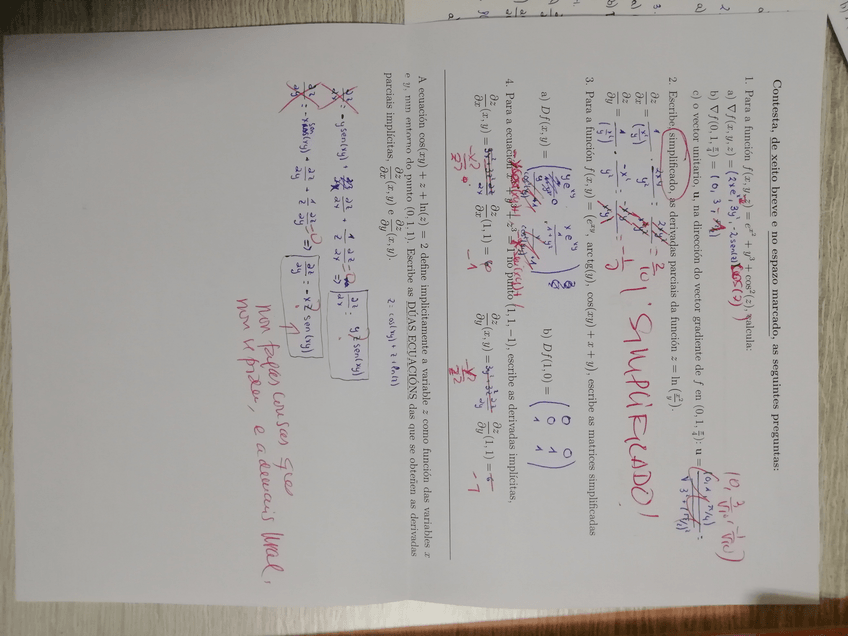 Contesta, de xeito breve e no espazo marcado, as seguintes preguntas:
1. Para a función f(x, y, z) = e^{x²} + y³ + cos²(z), calcula:
a) ∇f(x, y, z) = (2xe^{x²}, 3y², -2sen(z) cos(z))
b) ∇f(0, 1, π/4) = (0, 3, -1)
c) o vector unitario, u, na dirección do vector gradiente de f en (0, 1, π/4): u =
(0, 3/√10, -1/√10)
2. Escribe, simplificado, as derivadas parciais da función z = ln(x²/y).
∂z/∂x = 1/(x²/y) · 2xy/y² = = 2/x
∂z/∂y = 1/(x²/y) · -x²/y² = = -1/y
¡O! SIMPLIFICADO!
3. Para a función f(x, y) = (e^{xy}, arctg(y), cos(xy) + x + y), escribe as matrices simplificadas
a) Df(x, y) =
ye^{xy} xe^{xy}
b) Df(1, 0) =
0 0
0 1
1 1
4. Para a ecuación x³ + y³ + z³ = no punto (1, 1, −1), escribe as derivadas implícitas,
∂z/∂x (x, y) = -x²/z² ∂z/∂x (1, 1) = -1
∂z/∂y (x, y) = -y²/z² ∂z/∂y (1, 1) = -1
A ecuación cos(xy) + z + ln(z) = 2 define implicitamente a variable z como función das variables x
e y, nun entorno do punto (0, 1, 1). Escribe as DUAS ECUACIÓNS das que se obteñen as derivadas
parciais implícitas, ∂z/∂x (x, y) e ∂z/∂y (x, y).
z = cos(xy) + z + ln(z)
∂z/∂x = -y sen(xy) + ∂z/∂x + 1/z ∂z/∂x = 0 ⇒ ∂z/∂x = yz sen(xy)
∂z/∂y = -x sen(xy) + ∂z/∂y + 1/z ∂z/∂y = 0 ⇒ ∂z/∂y = -xz sen(xy)
non fagas cousas que
non se piden, e ademais mal.